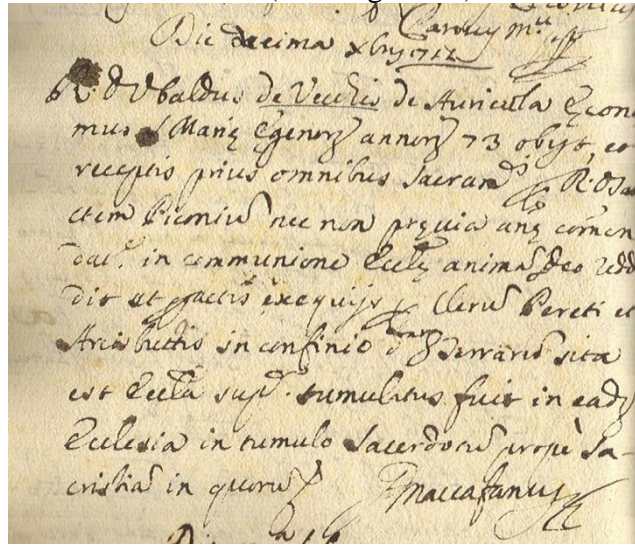 Carocij
Die decima Xbris 1712
R. D. Ubaldus de Vecchis de Auricula Econo
mus S. Marię Egenorȝ annorȝ 73 obijt, et
receptis prius omnibus Sacram R. D.
ctem Piconiũ nec non pręvia anę comen
dat. in communione Ecclę animã Deo redd
dit et factis exequijs Clerũ Pereti et
in confinio sita
est Eccla supª. tumulatus fuit in eadȝ
Ecclesia in tumulo Sacerdotũ propè Sa-
cristiã in quorũ Maccafanus